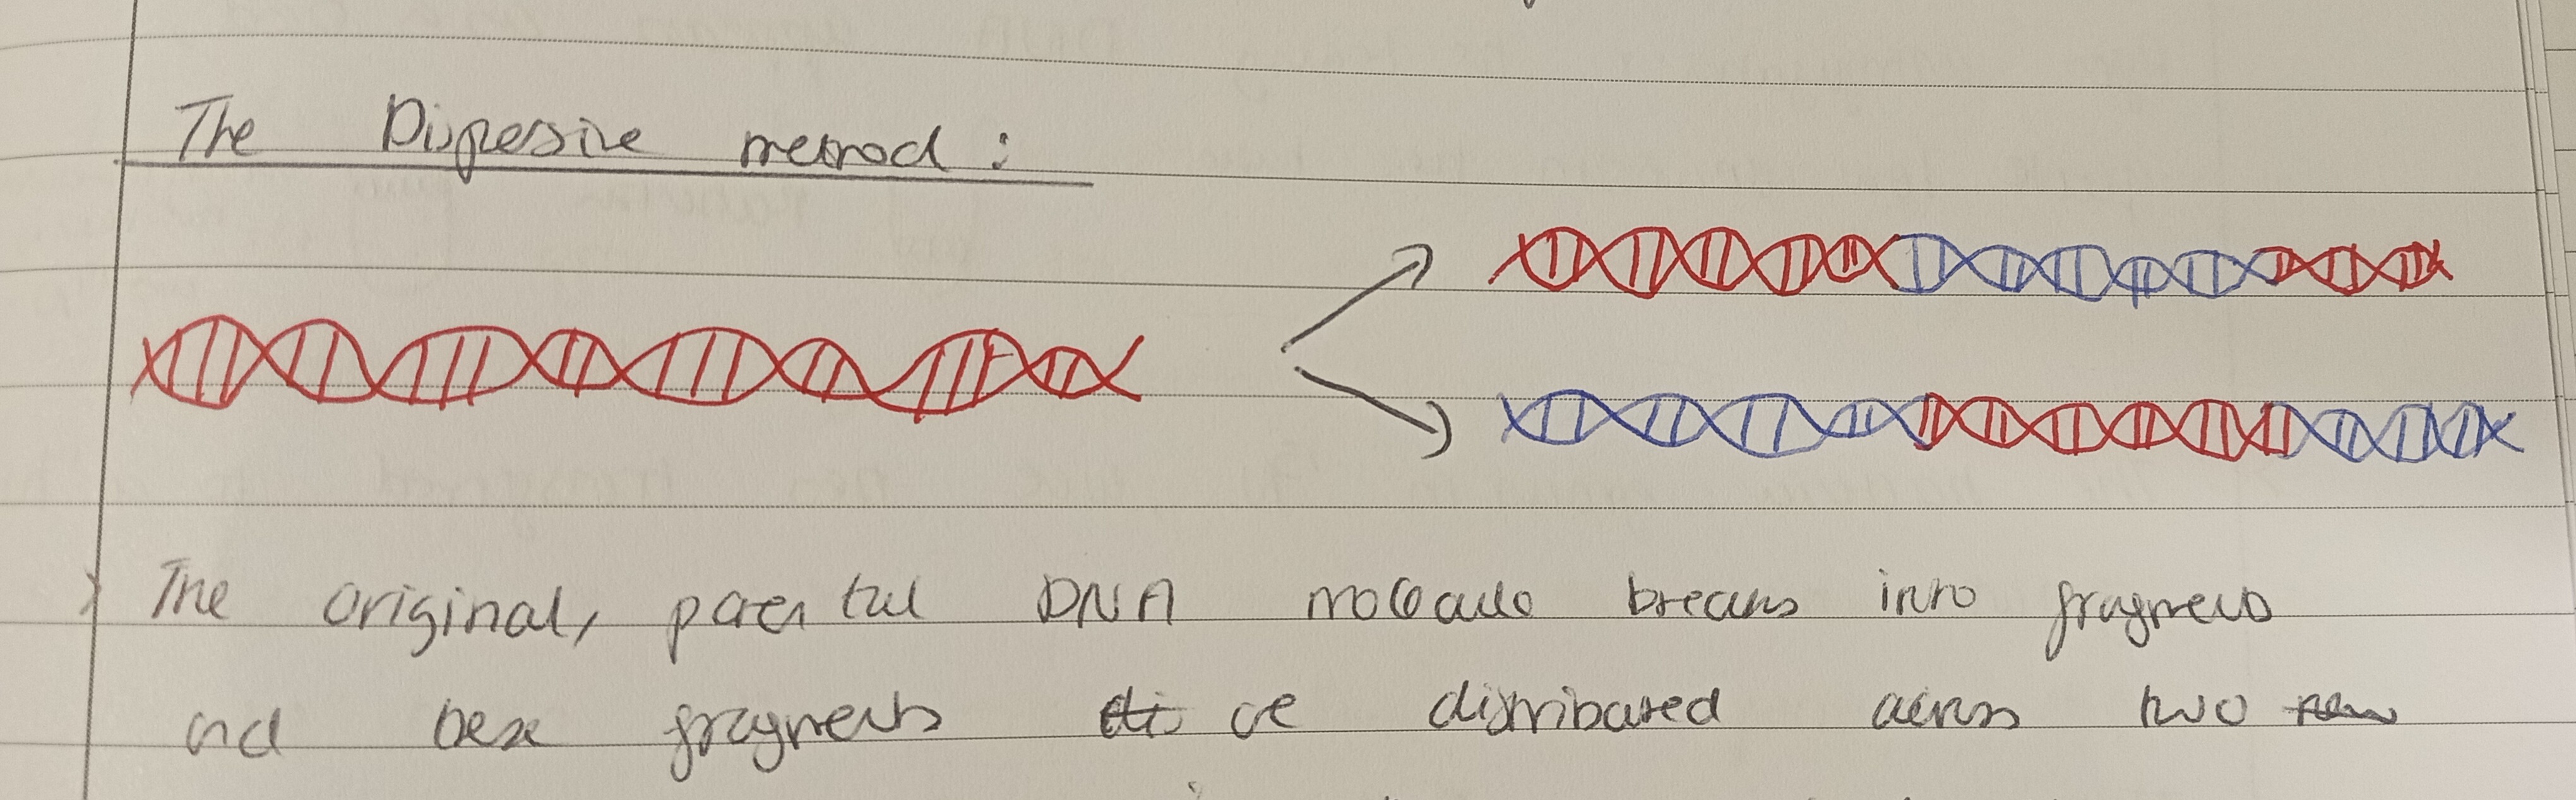 The Dispersive method :
The original, parental DNA molecule breaks into fragments
and these fragments di are distributed across two new